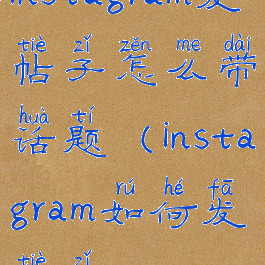 instagram发
tiè zǐ zěn me dài
帖子怎么带
huà tí
话题（insta
rú hé fā
gram如何发
tiè zǐ